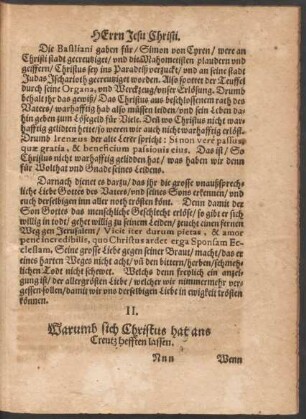 HErrn Jesu Christi.
Die Basiliani gaben für / Simon von Cyren / were an
Christi stadt gecreutziget / und die Mahometisten plaudern und
geiffern / Christus sey ins Paradeiß verzuckt / und an seine stadt
Judas Ischarioth gecreutziget worden. Also spottet der Teuffel
durch seine Organa, und Werckzeug / unser Erlösung. Drumb
behalt ihr das gewiß / Das Christus aus beschlossenem rath des
Vaters / warhafftig hab also müssen leiden / und sein Leben da-
hin geben zum Lösegelt für Viele. Deñ wo Christus nicht war-
hafftig gelitten hette / so weren wir auch nicht warhafftig erlöst.
Drumb Ireneus der alte Lerer spricht: Si non verè passus,
quæ gratia, & beneficium passionis eius. Das ist / So
Christus nicht warhafftig gelidden hat / was haben wir denn
für Wolthat und Gnade seines Leidens.
Darnach dienet es darzu / das ihr die grosse unaußsprech-
liche Liebe Gottes des Vaters / und seines Sons erkennen / und
euch derselbigen inn aller noth trösten könt. Denn damit der
Son Gottes das menschliche Geschlecht erlöse / so gibt er sich
willig in todt / gehet willig zu seinem Leiden / zeucht einen fernen
Weg gen Jerusalem / Vicit iter durum pietas, & amor
penè incredibilis, quo Christus ardet erga Sponsam Ec-
clesiam. Seine grosse Liebe gegen seiner Braut / macht / das er
eines harten Weges nicht acht / uñ den bittern / herben / schmertz-
lichen Todt nicht schewet. Welchs denn freylich ein anzei-
gung ist / der allergrösten Liebe / welcher wir nimmermehr ver-
gessen sollen / damit wir uns derselbigen Liebe in ewigkeit trösten
können.
II.
Warumb sich Christus hat ans
Creutz hefften lassen.
Nnn
Wenn